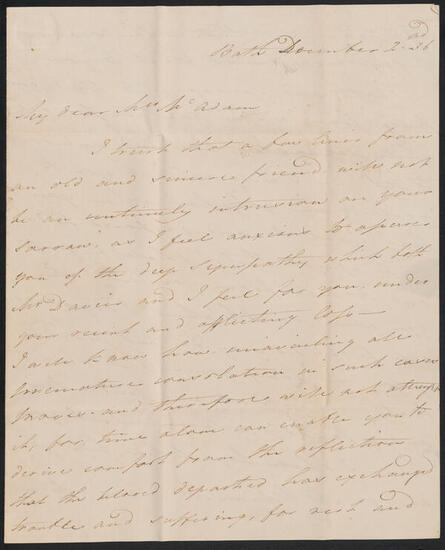 Bath December 2nd 36
My dear Mrs McAdam
I trust that a few lines from
an old and sincere friend will not
be an untimely intrusion on your
sorrow, as I feel anxious to assure
you of the deep sympathy which both
Mr Davies and I feel for you under
your recent and afflicting loss —
I well know how unavailing all
consolation in such cases
proves, and therefore will not attempt
it, for, time alone can enable you to
derive comfort from the reflection
that the blessed departed has exchanged
trouble and suffering, for rest and